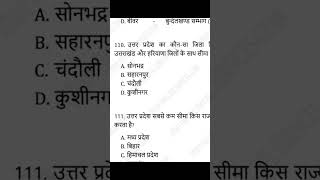 A. सोनभद्र
C. चंदौली
111. उत्तर
D. बांवर - बुन्देलखण्ड सम्भाग
110. उत्तर प्रदेश का कौन-सा जिला
उत्तराखंड और हरियाणा जिलों के साथ सीमा
A. सोनभद्र
B. सहारनपुर
C. चंदौली
D. कुशीनगर
111. उत्तर प्रदेश सबसे कम सीमा किस
करता है?
A. मध्य प्रदेश
B. बिहार
C. हिमाचल प्रदेश
सीमा किस